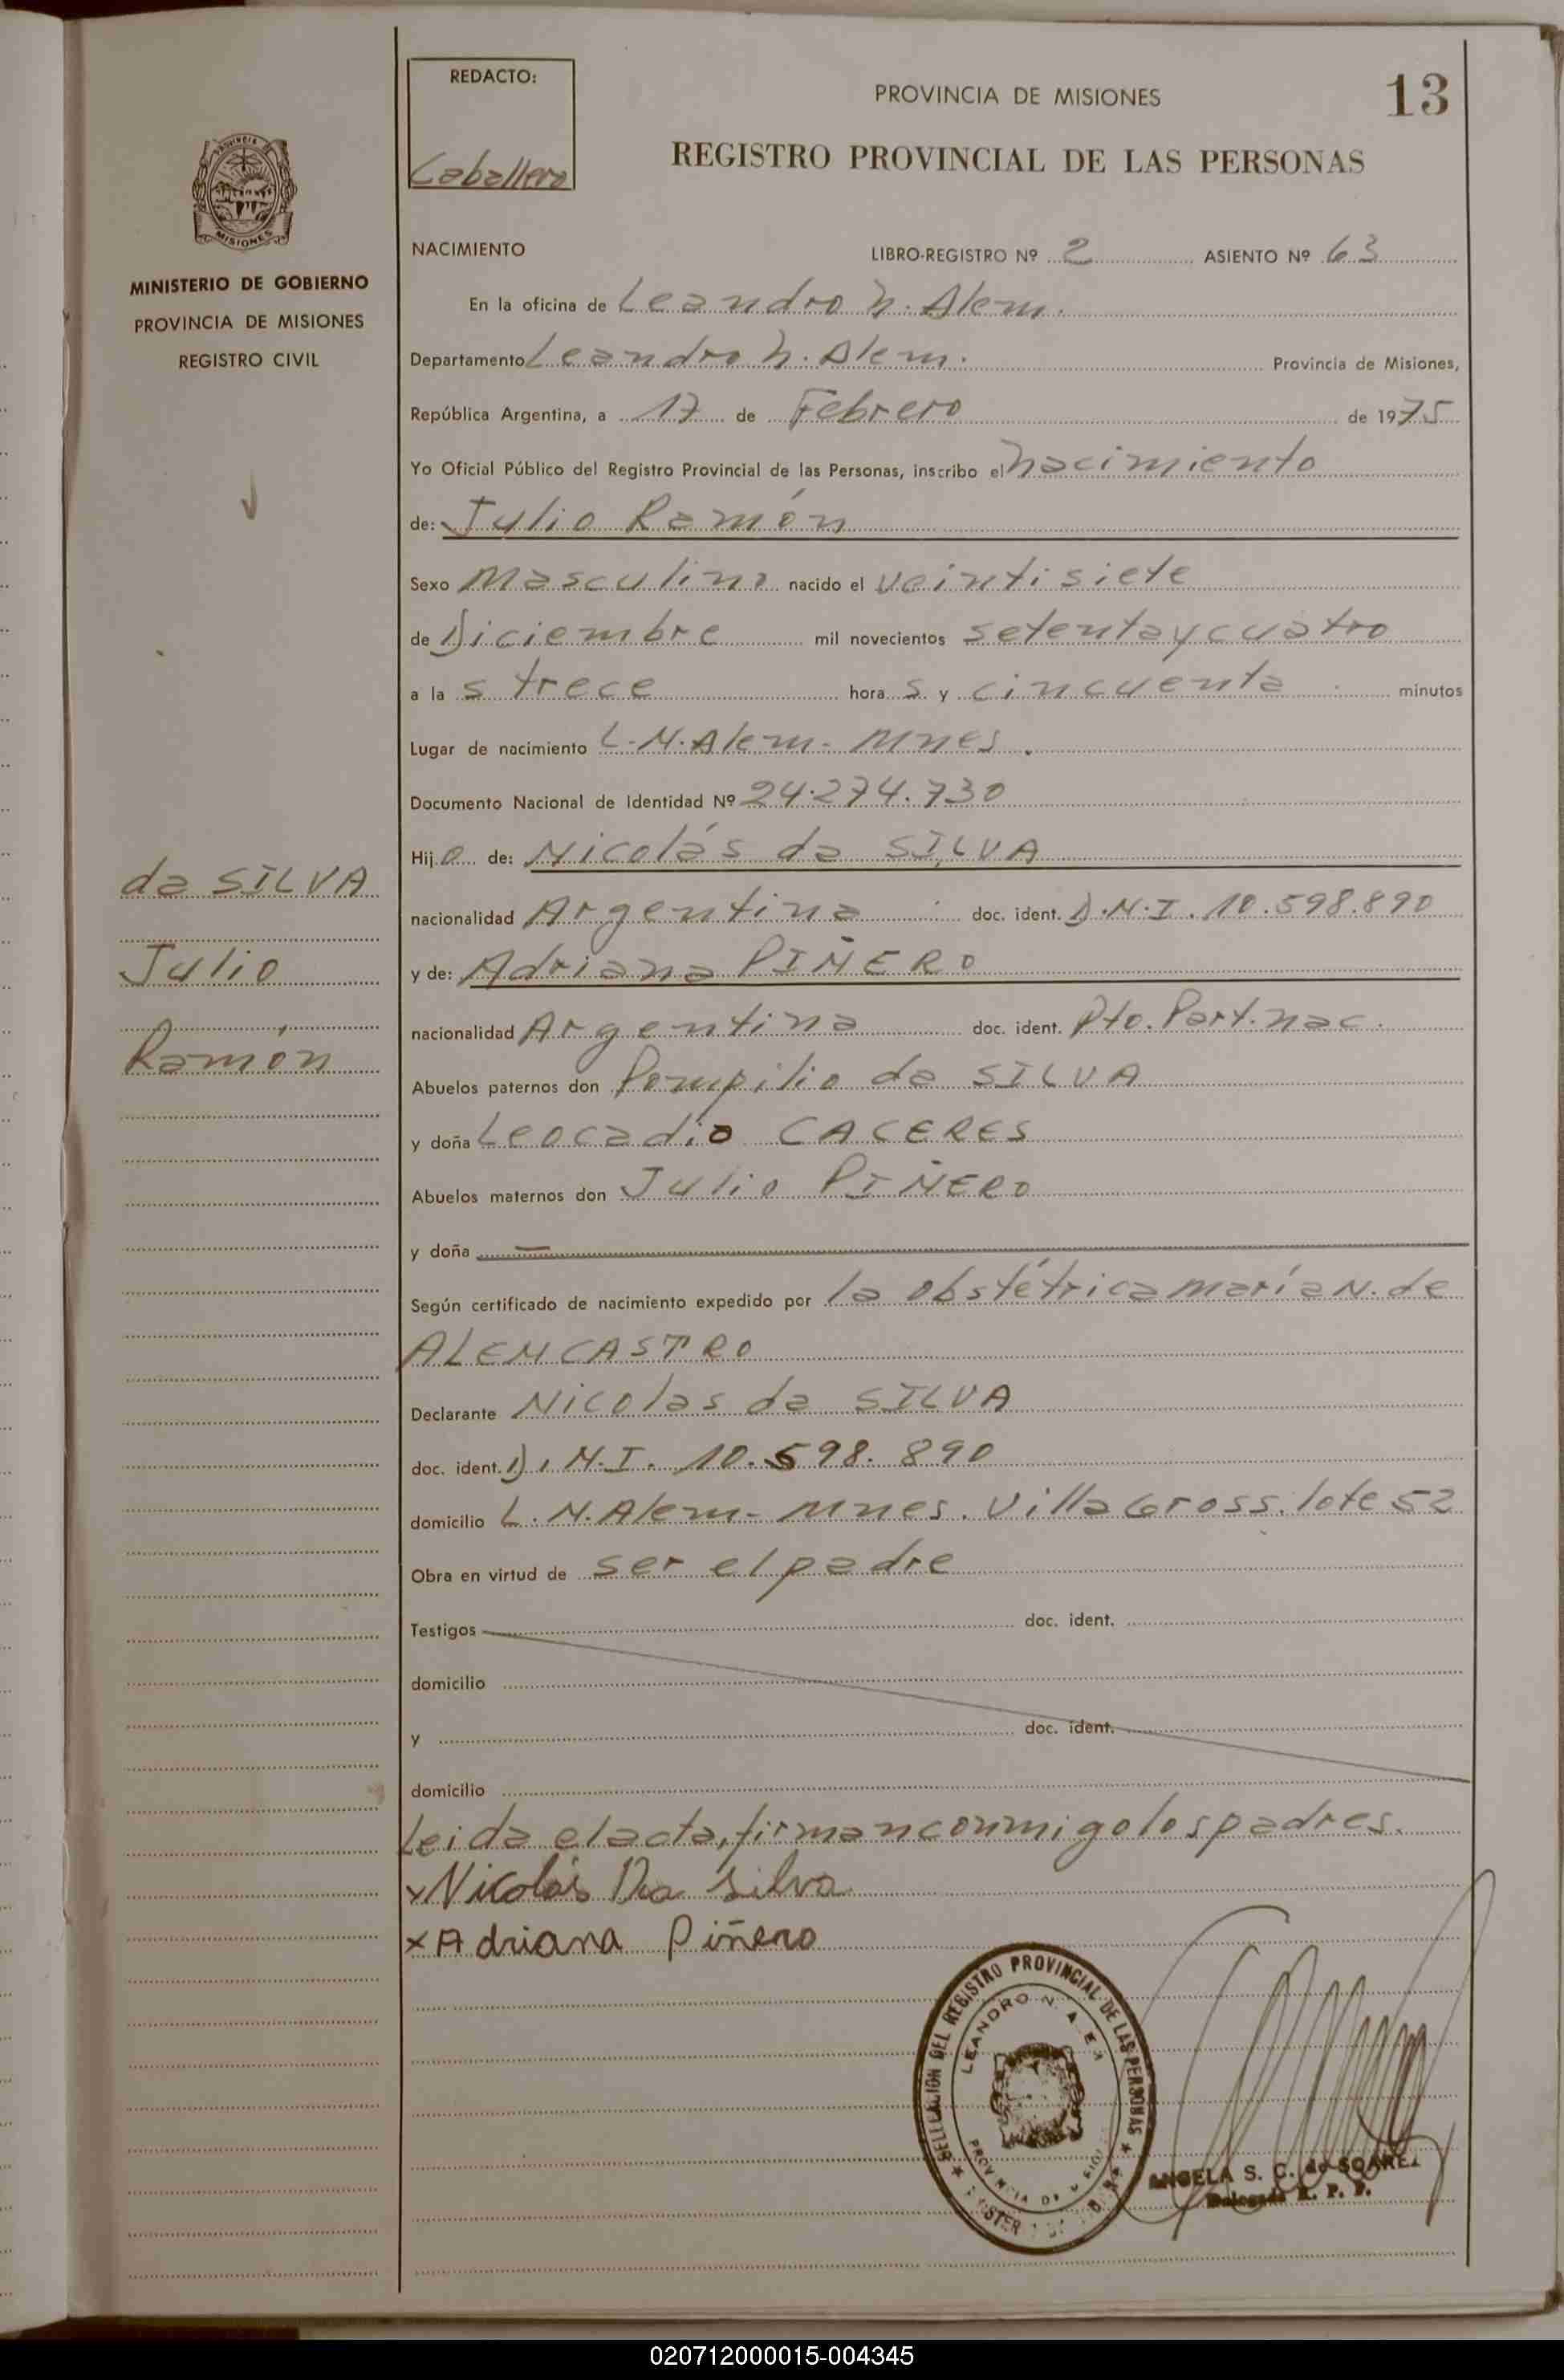 REDACTO:
Caballero
PROVINCIA DE MISIONES
13
REGISTRO PROVINCIAL DE LAS PERSONAS
PROVINCIA DE
MISIONES
MINISTERIO DE GOBIERNO
PROVINCIA DE MISIONES
REGISTRO CIVIL
NACIMIENTO
LIBRO-REGISTRO Nº 2 ASIENTO Nº 63
En la oficina de Leandro N. Alem.
Departamento Leandro N. Alem. Provincia de Misiones,
República Argentina, a 17 de Febrero de 1975
Yo Oficial Público del Registro Provincial de las Personas, inscribo el nacimiento
de: Julio Ramón
Sexo Masculino nacido el veintisiete
de Diciembre mil novecientos setenta y cuatro
a la s trece hora s y cincuenta minutos
Lugar de nacimiento L.N.Alem - Mnes.
Documento Nacional de Identidad Nº 24.274.730
Hijo de: Nicolás da SILVA
nacionalidad Argentina doc. ident. D.N.I. 10.598.890
y de: Adriana PIÑERO
nacionalidad Argentina doc. ident. Pto. Part. nac.
Abuelos paternos don Pompilio da SILVA
y doña Leocadio CACERES
Abuelos maternos don Julio PIÑERO
y doña —
Según certificado de nacimiento expedido por la obstétrica María N. de
ALENCASTRO
Declarante Nicolas da SILVA
doc. ident. D.N.I. 10.598.890
domicilio L.N.Alem - Mnes. Villa Gross. lote 52
Obra en virtud de ser el padre
Testigos doc. ident.
domicilio
y doc. ident.
domicilio
Leida el acta, firman conmigo los padres.
x Nicolás Da Silva
x Adriana Piñero
da SILVA
Julio
Ramón
DEL REGISTRO PROVINCIAL DE LAS PERSONAS
LEANDRO N. ALEM
PROVINCIA DE
ANGELA S. C. de SOAREZ
Delegada R. P. P.
020712000015-004345